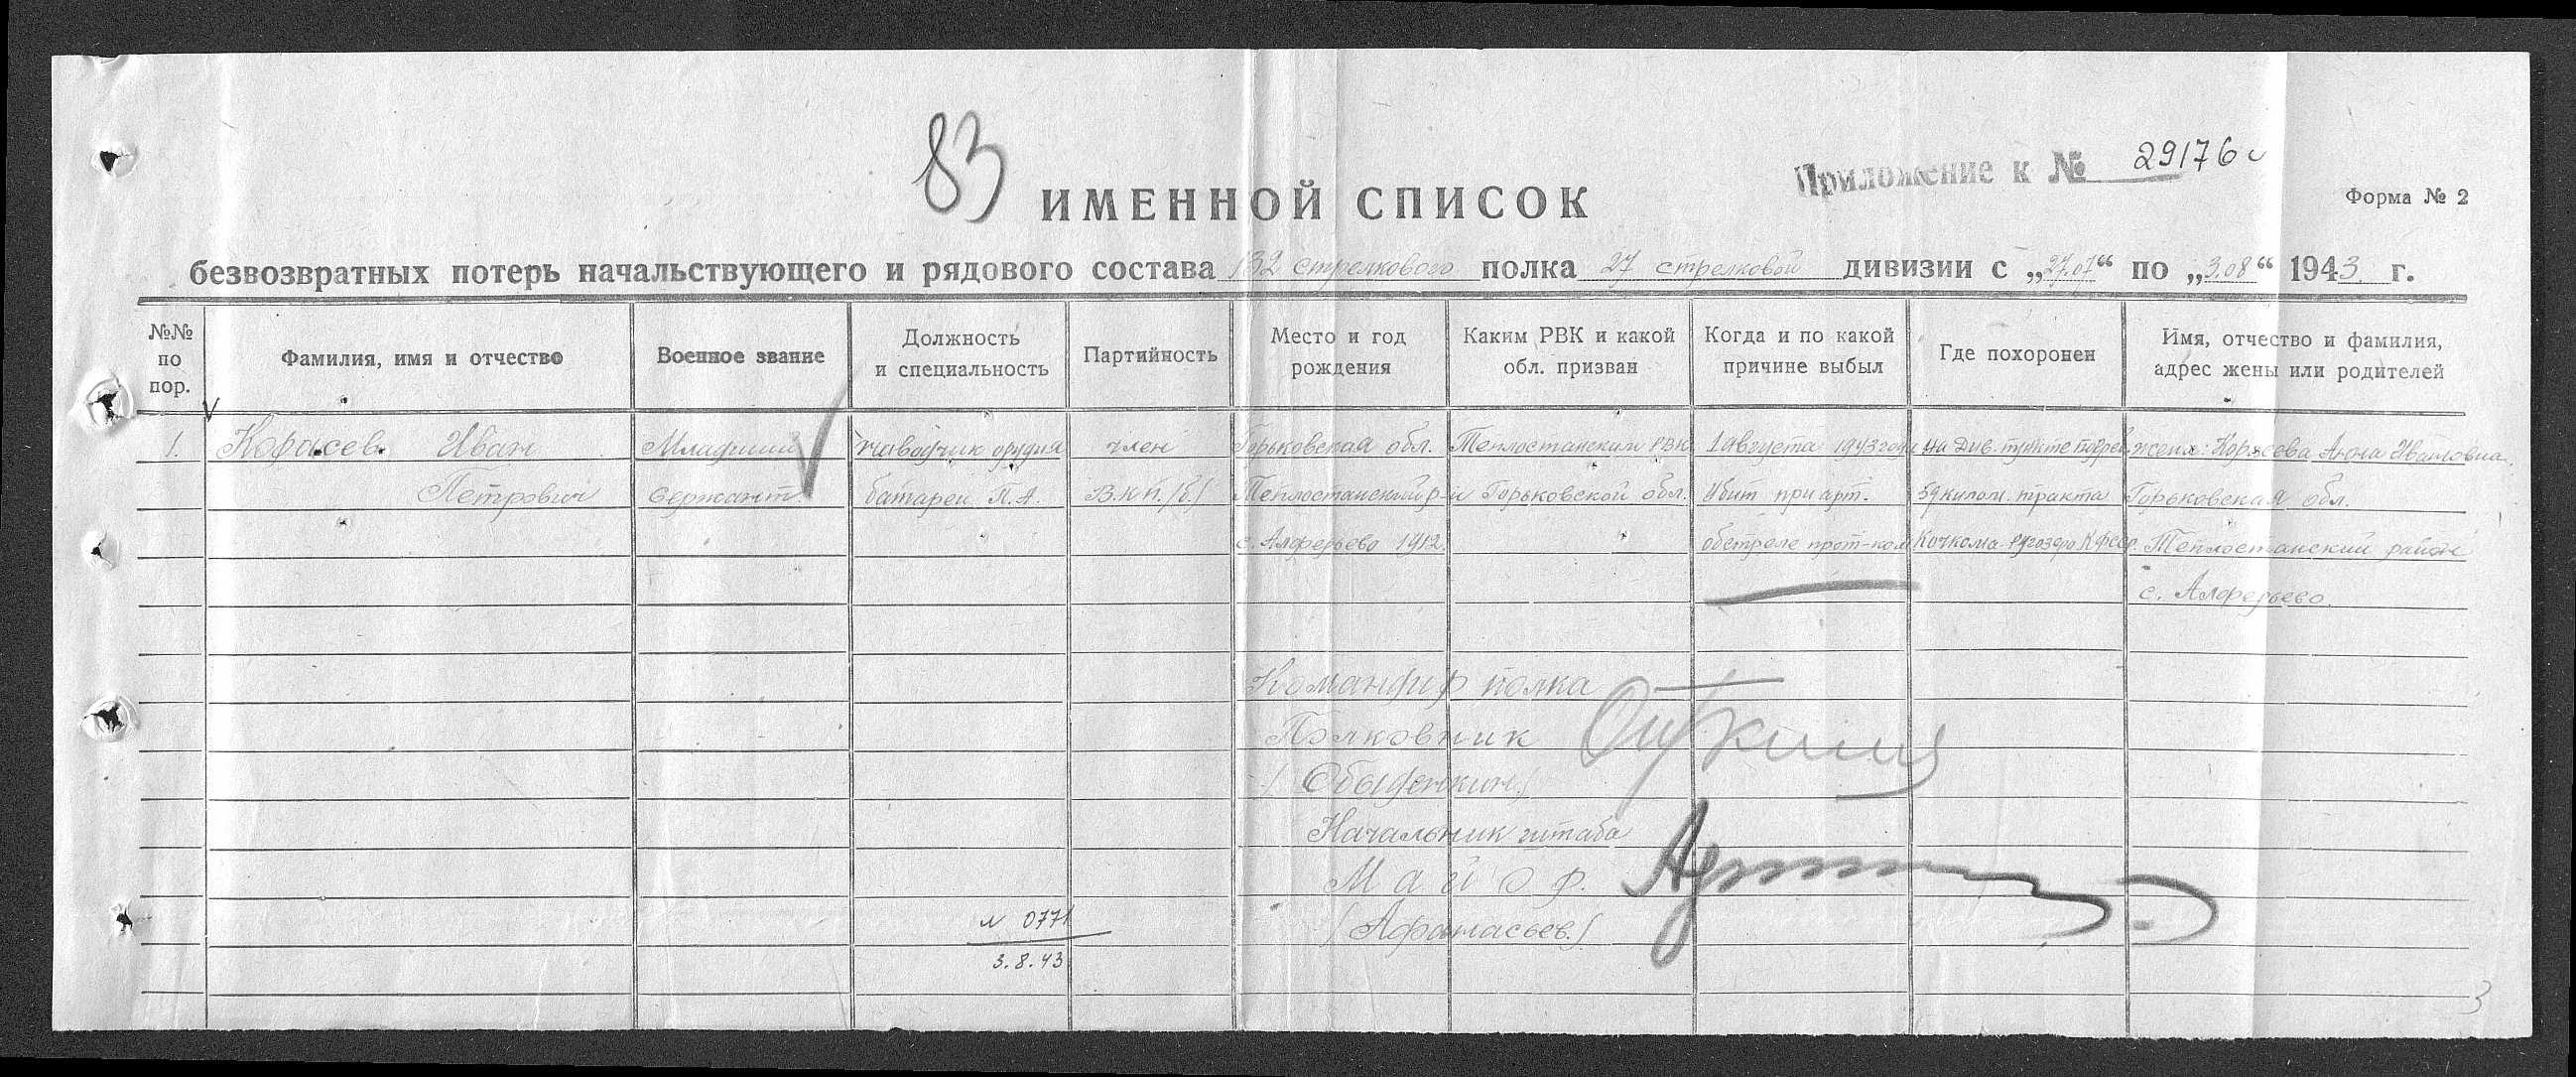 83
Приложение к № 29176с
ИМЕННОЙ СПИСОК
Форма № 2
безвозвратных потерь начальствующего и рядового состава 132 стрелкового полка 27 стрелковой дивизии с „27.07“ по „3.08“ 1943 г.
№№ по пор.
Фамилия, имя и отчество
Военное звание
Должность и специальность
Партийность
Место и год рождения
Каким РВК и какой обл. призван
Когда и по какой причине выбыл
Где похоронен
Имя, отчество и фамилия, адрес жены или родителей
1. Корасев Иван Младший наводчик орудия член Горьковская обл. Теплостанским РВК 1 августа 1943 года на Див. пункте погреб. жена: Корясева Анна Ивановна
Петрович сержант батареи П.А. В.К.П./б/ Теплостанский р-н Горьковской обл. Убит при арт. 59 килом. тракта Горьковская обл.
с. Алферьево 1912. обстреле прот-ком Кочкома-Ругозеро КФССР Теплостанский район
с. Алферьево
Командир полка
Полковник
/Обыденкин/
Начальник штаба
Майор
/Афанасьев/
№ 0771
3.8.43
3